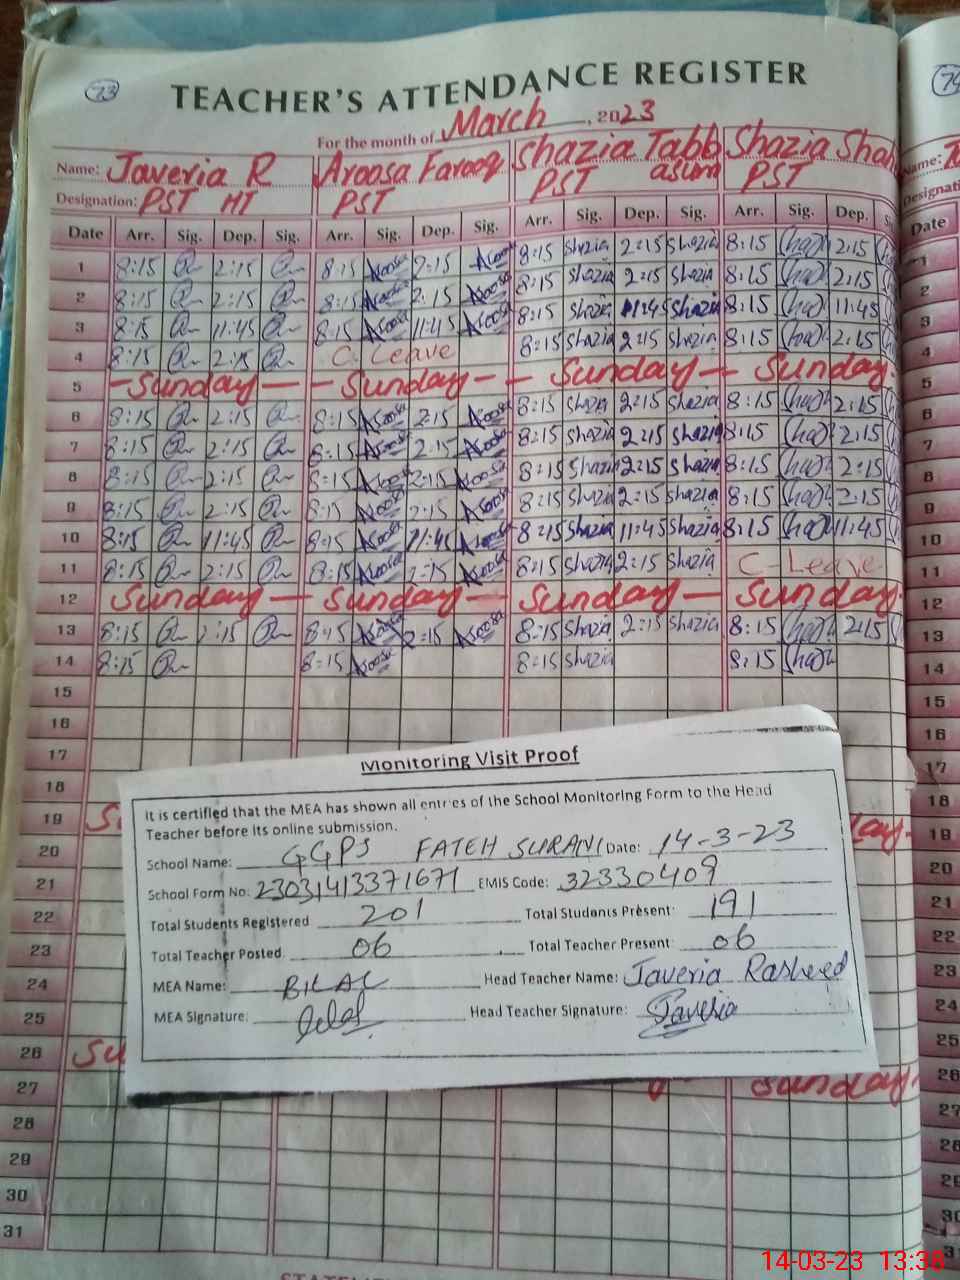 73
TEACHER'S ATTENDANCE REGISTER
For the month of March, 2023
Name: Javeria R Aroosa Farooq Shazia Tabbasum Shazia Shah
Designation: PST HT PST PST PST
Date Arr. Sig. Dep. Sig. Arr. Sig. Dep. Sig. Arr. Sig. Dep. Sig. Arr. Sig. Dep.
1 8:15 2:15 8:15 Aroosa 2:15 Aroosa 8:15 Shazia 2:15 Shazia 8:15 2:15
2 8:15 2:15 8:15 Aroosa 2:15 Aroosa 8:15 Shazia 2:15 Shazia 8:15 2:15
3 8:15 11:45 8:15 Aroosa 11:45 Aroosa 8:15 Shazia 11:45 Shazia 8:15 11:45
4 8:15 2:15 C. Leave 8:15 Shazia 2:15 Shazia 8:15 2:15
5 Sunday Sunday Sunday Sunday
6 8:15 2:15 8:15 Aroosa 2:15 Aroosa 8:15 Shazia 2:15 Shazia 8:15 2:15
7 8:15 2:15 8:15 Aroosa 2:15 Aroosa 8:15 Shazia 2:15 Shazia 8:15 2:15
8 8:15 2:15 8:15 Aroosa 2:15 Aroosa 8:15 Shazia 2:15 Shazia 8:15 2:15
9 8:15 2:15 8:15 Aroosa 2:15 Aroosa 8:15 Shazia 2:15 Shazia 8:15 2:15
10 8:15 11:45 8:15 Aroosa 11:45 Aroosa 8:15 Shazia 11:45 Shazia 8:15 11:45
11 8:15 2:15 8:15 Aroosa 2:15 Aroosa 8:15 Shazia 2:15 Shazia C-Leave
12 Sunday Sunday Sunday Sunday
13 8:15 2:15 8:15 Aroosa 2:15 Aroosa 8:15 Shazia 2:15 Shazia 8:15 2:15
14 8:15 8:15 Aroosa 8:15 Shazia 8:15
15
16
17
18
19
20
21
22
23
24
25
26
27 Sunday
28
29
30
31
Monitoring Visit Proof
It is certified that the MEA has shown all entries of the School Monitoring Form to the Head
Teacher before its online submission.
School Name: GGPS FATEH SURANI Date: 14-3-23
School Form No: 23031413371671 EMIS Code: 32330409
Total Students Registered 201 Total Students Present: 191
Total Teacher Posted 06 Total Teacher Present: 06
MEA Name: BILAL Head Teacher Name: Javeria Rasheed
MEA Signature: Bilal Head Teacher Signature: Javeria
Name:
Designati
Date
1
2
3
4
5
6
7
8
9
10
11
12
13
14
15
16
17
18
19
20
21
22
23
24
25
26
27
28
29
30
14-03-23 13:38